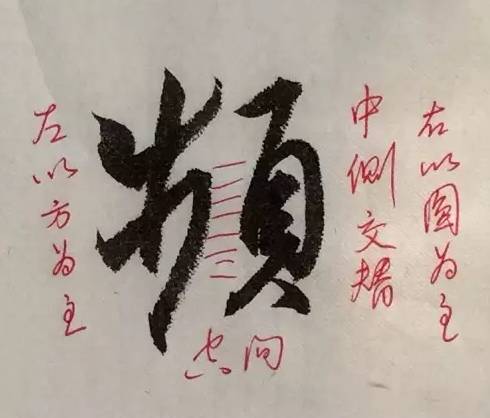 左以方为主
頻
空间
中侧交替
右以圆为主